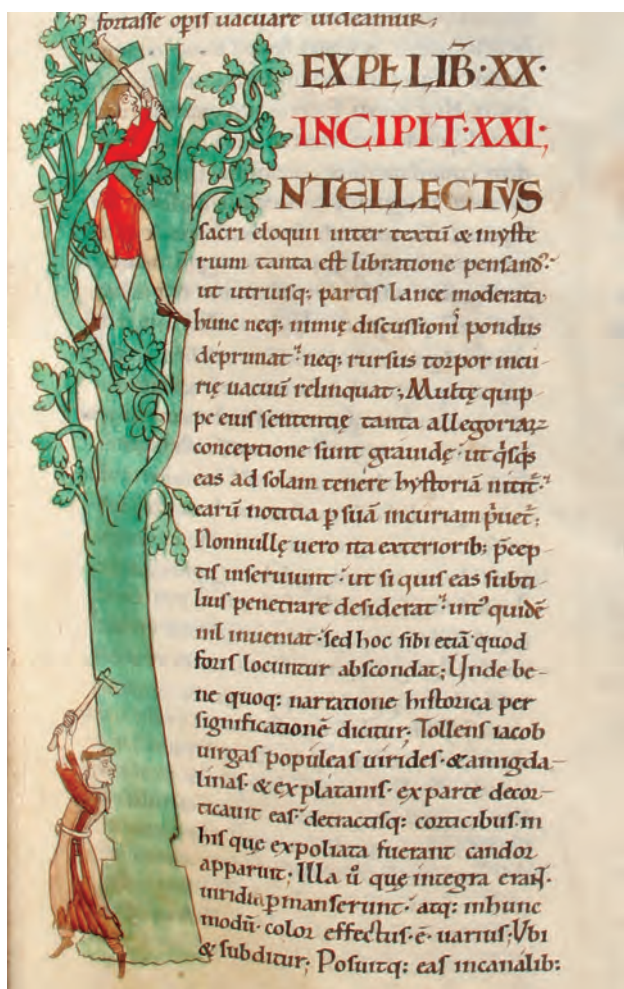 fortasse opis uacuare uideamur;
EXPƚ LIB̃·XX·
INCIPIT·XXI;
NTELLECTVS
sacri eloquii inter textũ & myste
rium tanta est libratione pensand᷒·
ut utriusq; partis lance moderata·
hunc neq; nimię discussionĩ pondus
deprimat· neq; rursus torpor incu
rię uacuũ relinquat; Multę quip
pe eius sententię tanta allegoriaꝝ
conceptione sunt grauidę· ut q̃sq̃s
eas ad solam tenere hystoriã nitit̃·
earũ notitia p suã incuriam p̃uet̃;
Nonnullę uero ita exteriorib; p̃cep
tis inseruiunt· ut si quis eas subti
lius penetrare desiderat· int᷒ quidẽ
nil inueniat· sed hoc sibi etiã quod
foris locuntur abscondat; Unde be
ne quoq; narratione historica per
significationẽ dicitur; Tollens iacob
uirgas populeas uirides· & amigda
linas· & ex platanis· ex parte decor
ticauit eas· detractisq; corticibus· in
his que expoliata fuerant candor
apparuit; Illa ũ quę integra erant·
uiridia pmanserunt· atq; in hunc
modũ· color effectus· ẽ· uarius; Vbi
& subditur; Posuitq; eas in canalib;